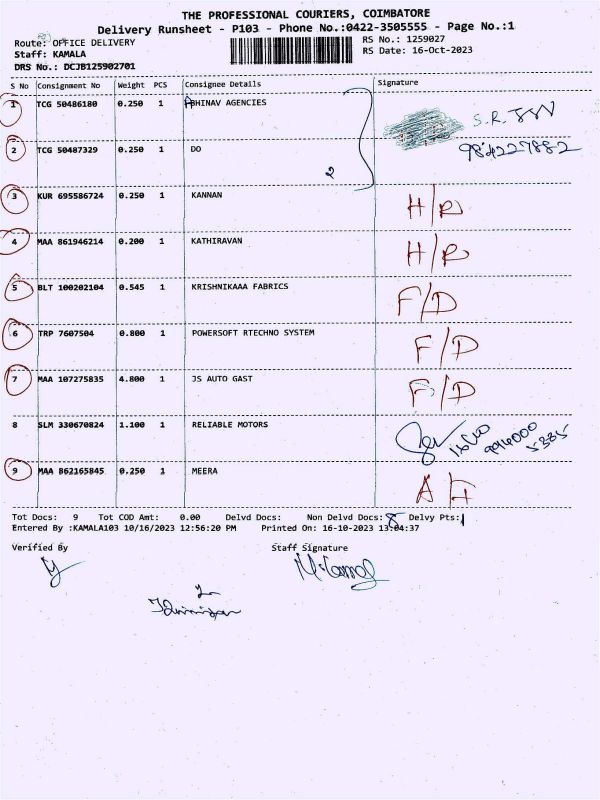 THE PROFESSIONAL COURIERS, COIMBATORE
Delivery Runsheet - P103 - Phone No.:0422-3505555 - Page No.:1
Route: OFFICE DELIVERY RS No.: 1259027
Staff: KAMALA RS Date: 16-Oct-2023
DRS No.: DCJB125902701
S No Consignment No Weight PCS Consignee Details Signature
1 TCG 50486180 0.250 1 ABHINAV AGENCIES S.R.
2 TCG 50487329 0.250 1 DO 2
3 KUR 695586724 0.250 1 KANNAN H/R
4 MAA 861946214 0.200 1 KATHIRAVAN H/R
5 BLT 100202104 0.545 1 KRISHNIKAAA FABRICS F/D
6 TRP 7607504 0.800 1 POWERSOFT RTECHNO SYSTEM F/D
7 MAA 107275835 4.800 1 JS AUTO GAST F/D
8 SLM 330670824 1.100 1 RELIABLE MOTORS
9 MAA 862165845 0.250 1 MEERA
Tot Docs: 9 Tot COD Amt: 0.00 Delvd Docs: Non Delvd Docs: 8 Delvy Pts: 1
Entered By :KAMALA103 10/16/2023 12:56:20 PM Printed On: 16-10-2023 13:04:37
Verified By Staff Signature